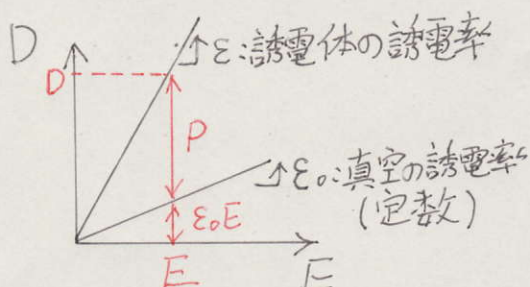 D
ε:誘電体の誘電率
D
P
ε₀:真空の誘電率
(定数)
ε₀E
E
E